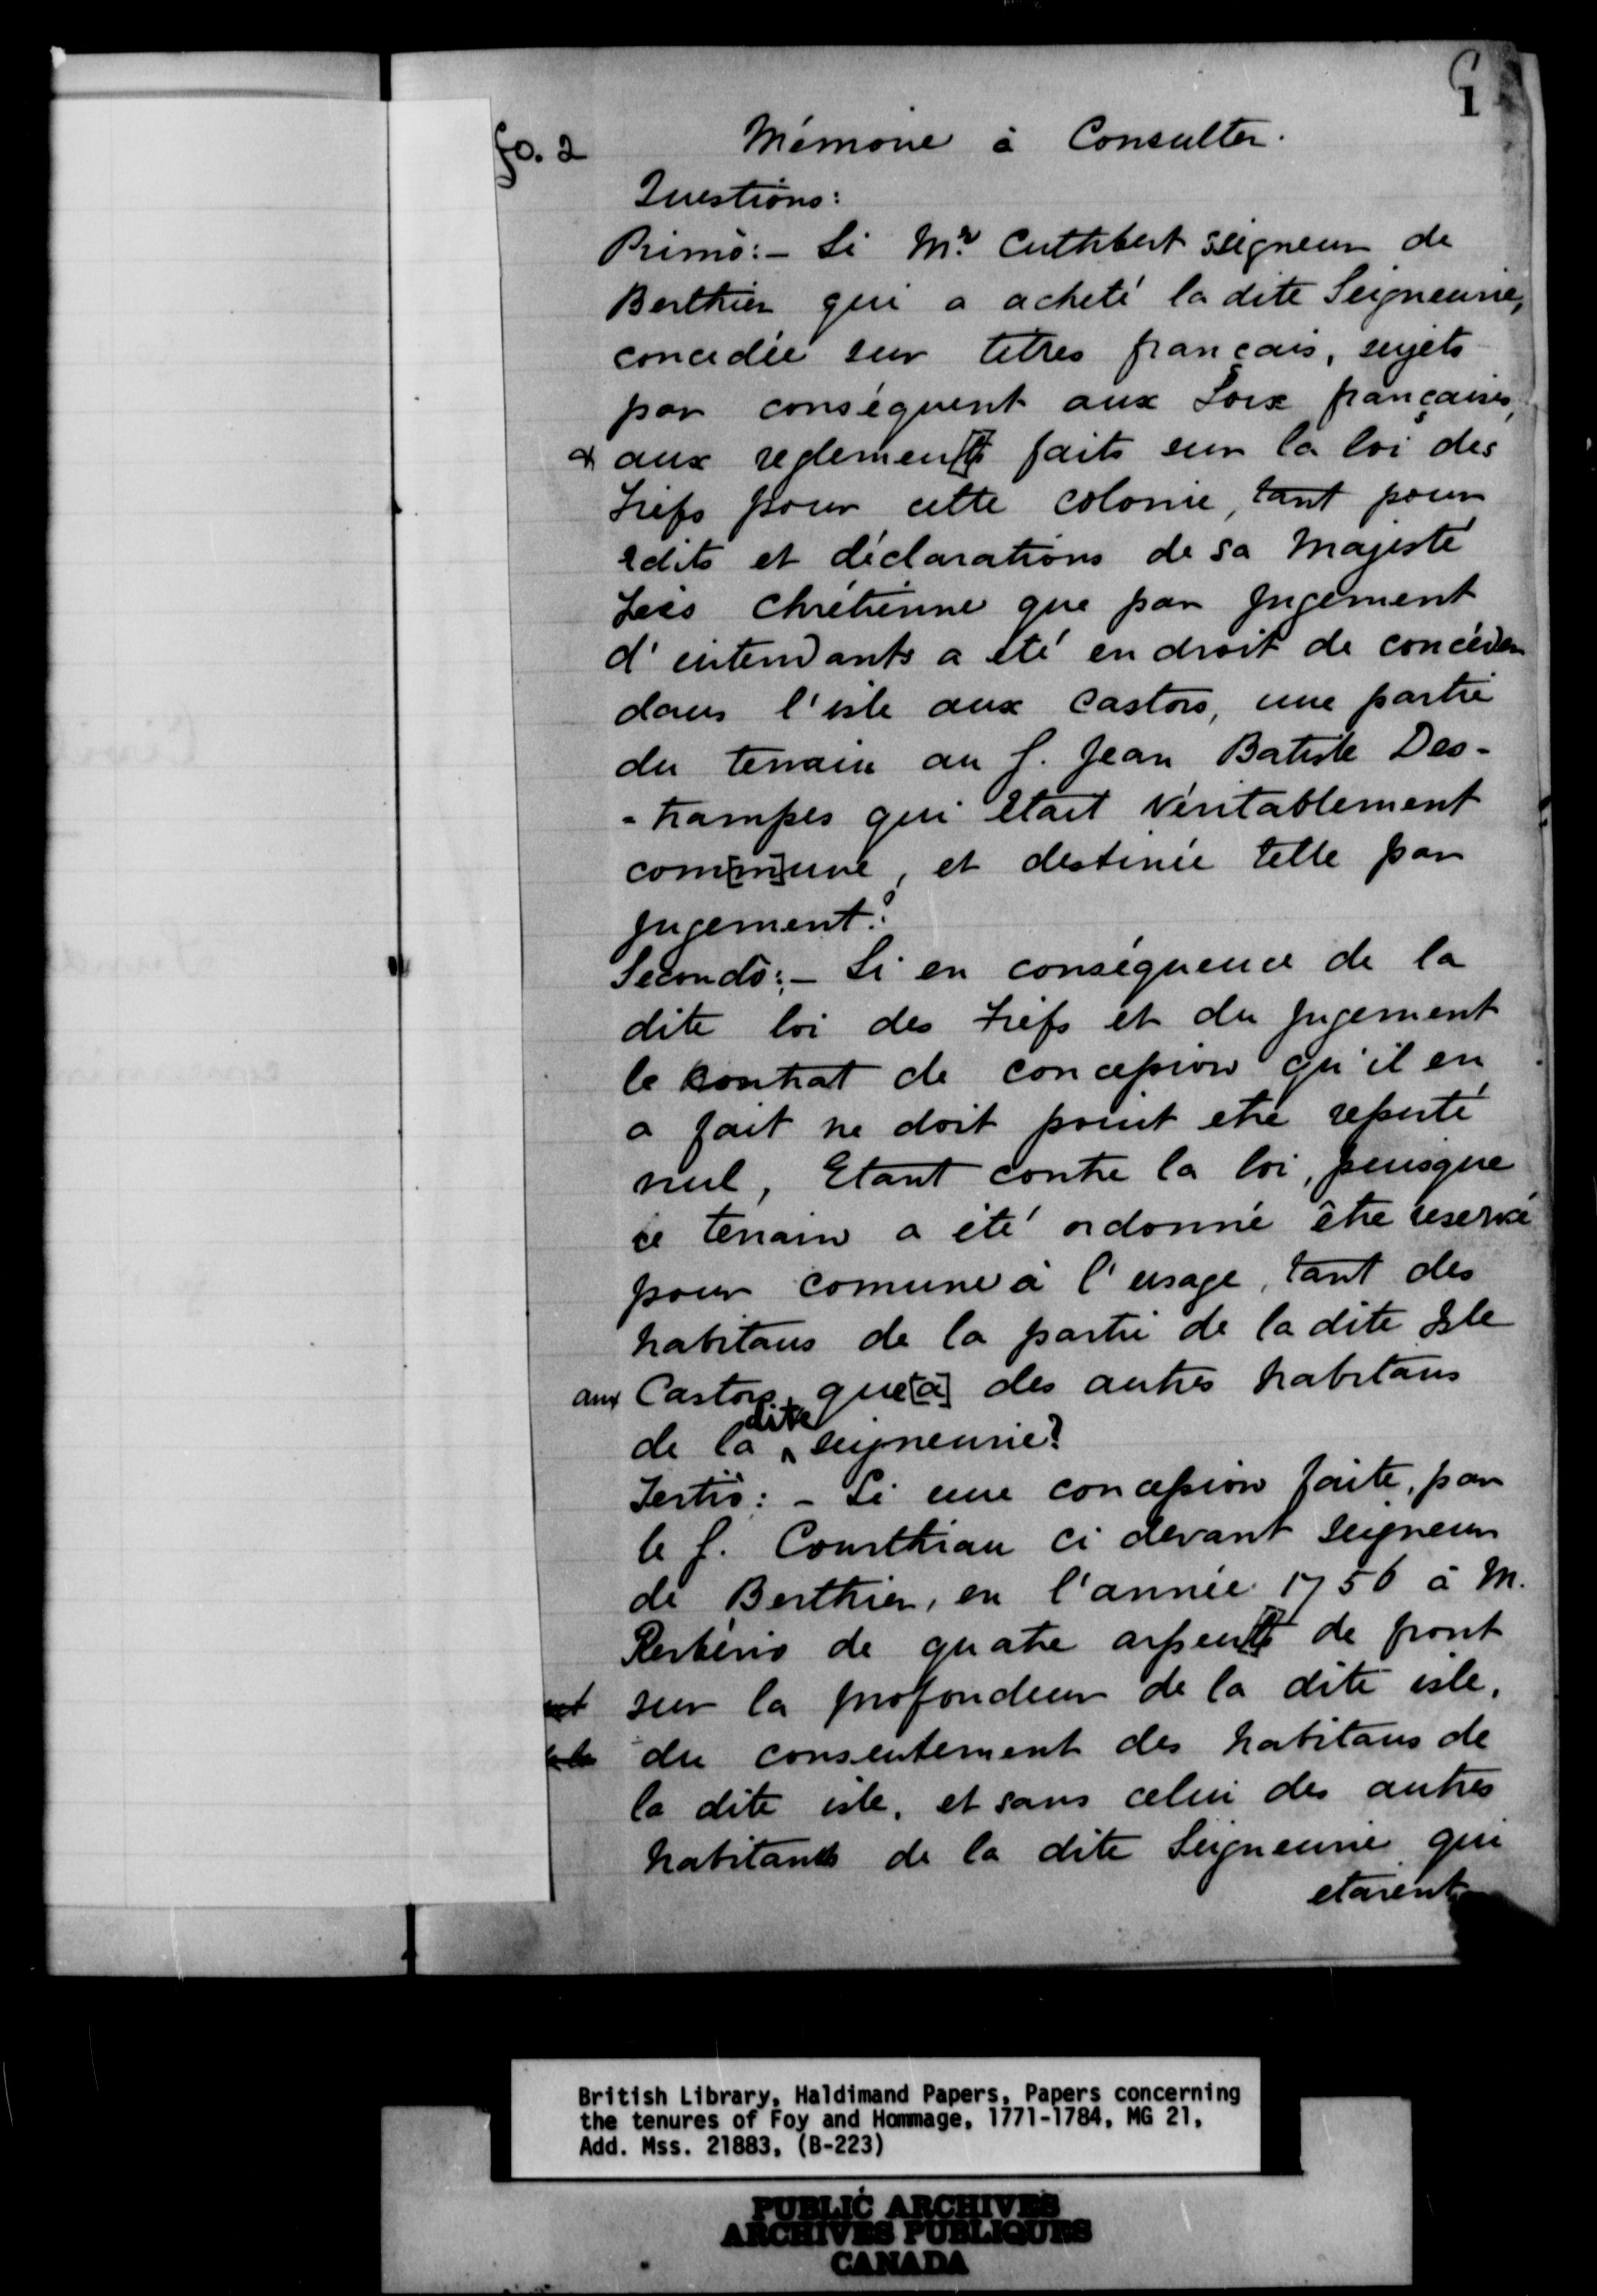 1
fo. 2
Mémoire à Consulter.
Questions:
Primò:- Si Mr. Cuthbert seigneur de
Berthier qui a acheté la dite Seigneurie,
concedée sur titres français, sujets
par conséquent aux Loix françaises,
& aux reglemen[t]s faits sur la loi des
Fiefs pour cette colonie, tant pour
edits et déclarations de sa Majesté
Très Chrétienne que par Jugement
d'intendants a été en droit de concéder
dans l'isle aux Castors, une partie
du terrain au S. Jean Batiste Des-
-trampes qui était véritablement
com[m]une, et destinée telle par
Jugement?
Secondò:- Si en conséquence de la
dite loi des Fiefs et du Jugement
le contrat de concession qu'il en
a fait ne doit point etre reputé
nul, Etant contre la loi, puisque
ce terrain a été ordonné être reservé
pour comune à l'usage, tant des
habitans de la partie de la dite Isle
aux Castors, que [à] des autres habitans
de la dite seigneurie?
Tertiò:- Si une concession faite, par
le S. Courthiau ci devant seigneur
de Berthier, en l'année 1756 à M.
de quatre arpen[t]s de front
sur la profondeur de la dite isle,
du consentement des habitans de
la dite isle, et sans celui des autres
habitants de la dite Seigneurie qui
etaient
British Library, Haldimand Papers, Papers concerning
the tenures of Foy and Hommage, 1771-1784, MG 21,
Add. Mss. 21883, (B-223)
PUBLIC ARCHIVES
ARCHIVES PUBLIQUES
CANADA